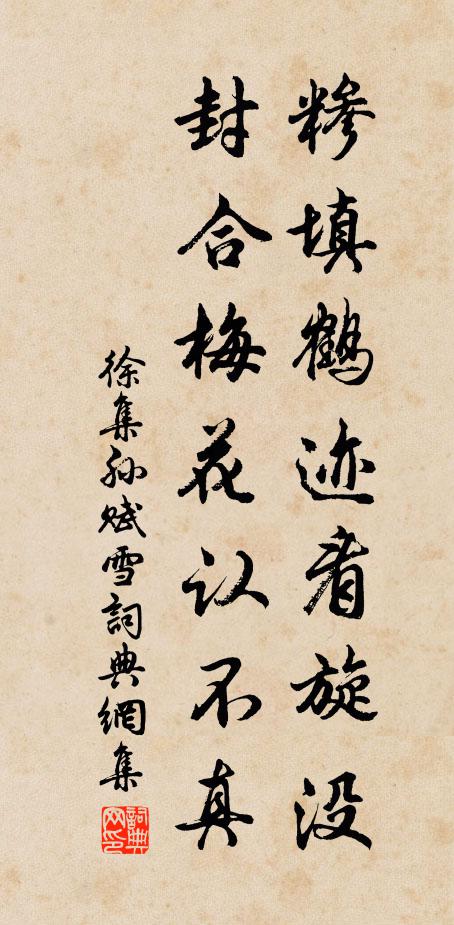 糁填鹤迹看旋没
封合梅花认不真
徐集孙赋雪詞典網集
詞典网印